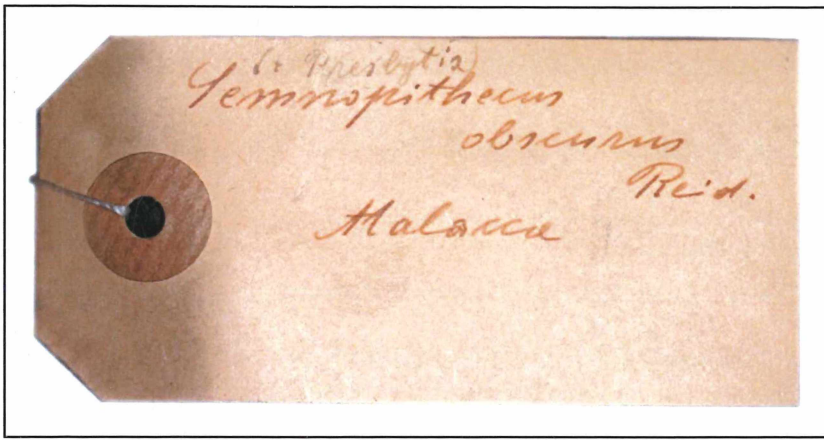 (= Presbytis)
Semnopithecus
obscurus
Reid.
Malacca